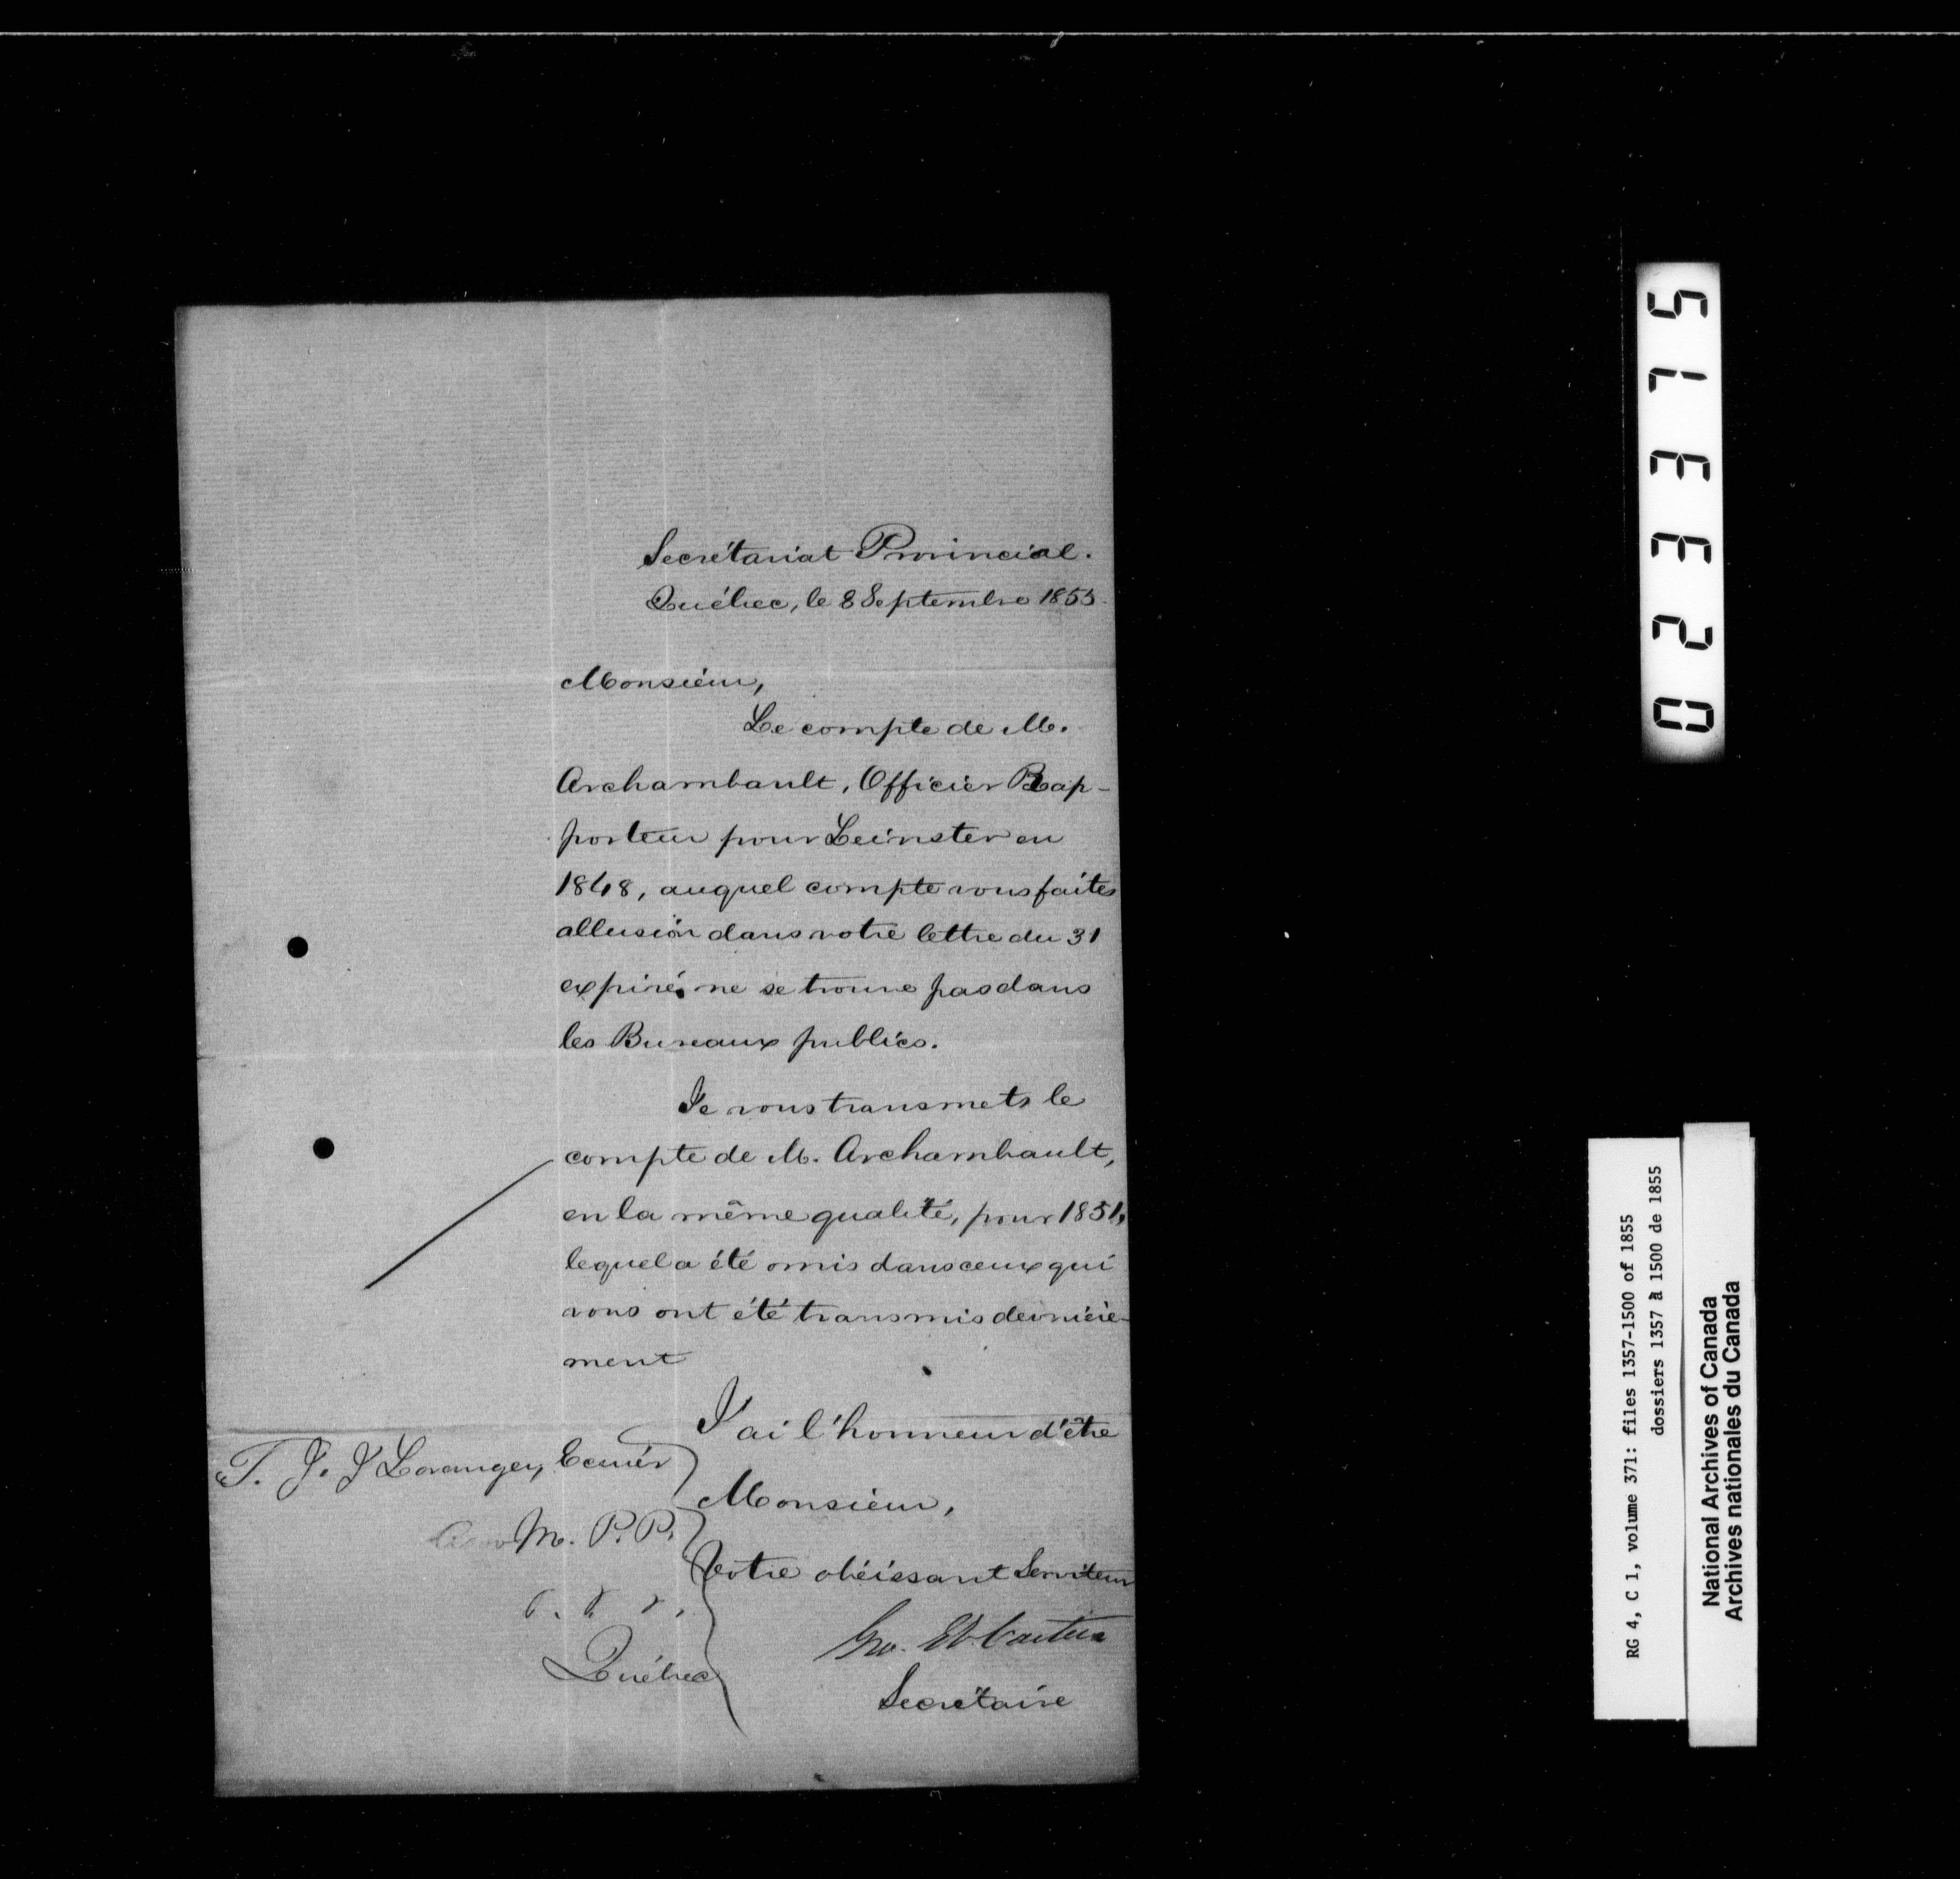 Secrétariat Provincial.
Québec, le 8 Septembre 1855.
Monsieur,
Le compte de M.
Archambault, Officier Rap-
porteur pour Leinster en
1848, auquel compte vous faites
allusion dans votre lettre du 31
expiré, ne se trouve pas dans
les Bureaux publics.
Je vous transmets le
compte de M. Archambault,
en la même qualité, pour 1851,
lequel a été omis dans ceux qui
vous ont été transmis dernière-
ment
J'ai l'honneur d'être
Monsieur,
Votre obéissant Serviteur
Geo. Et. Cartier
Secrétaire
T. J. J Loranger, Ecuier
M. P. P.
Québec
023375
RG 4, C 1, volume 371: files 1357-1500 of 1855
dossiers 1357 à 1500 de 1855
National Archives of Canada
Archives nationales du Canada